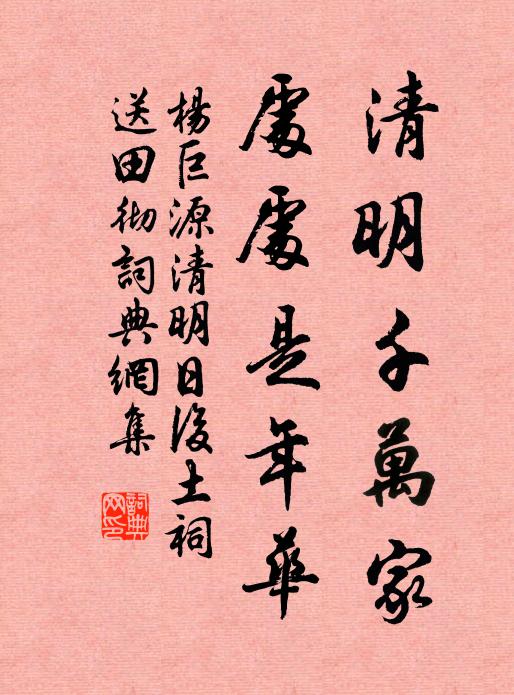 清明千萬家
處處是年華
楊巨源清明日後土祠
送田彻詞典網集
詞典网印